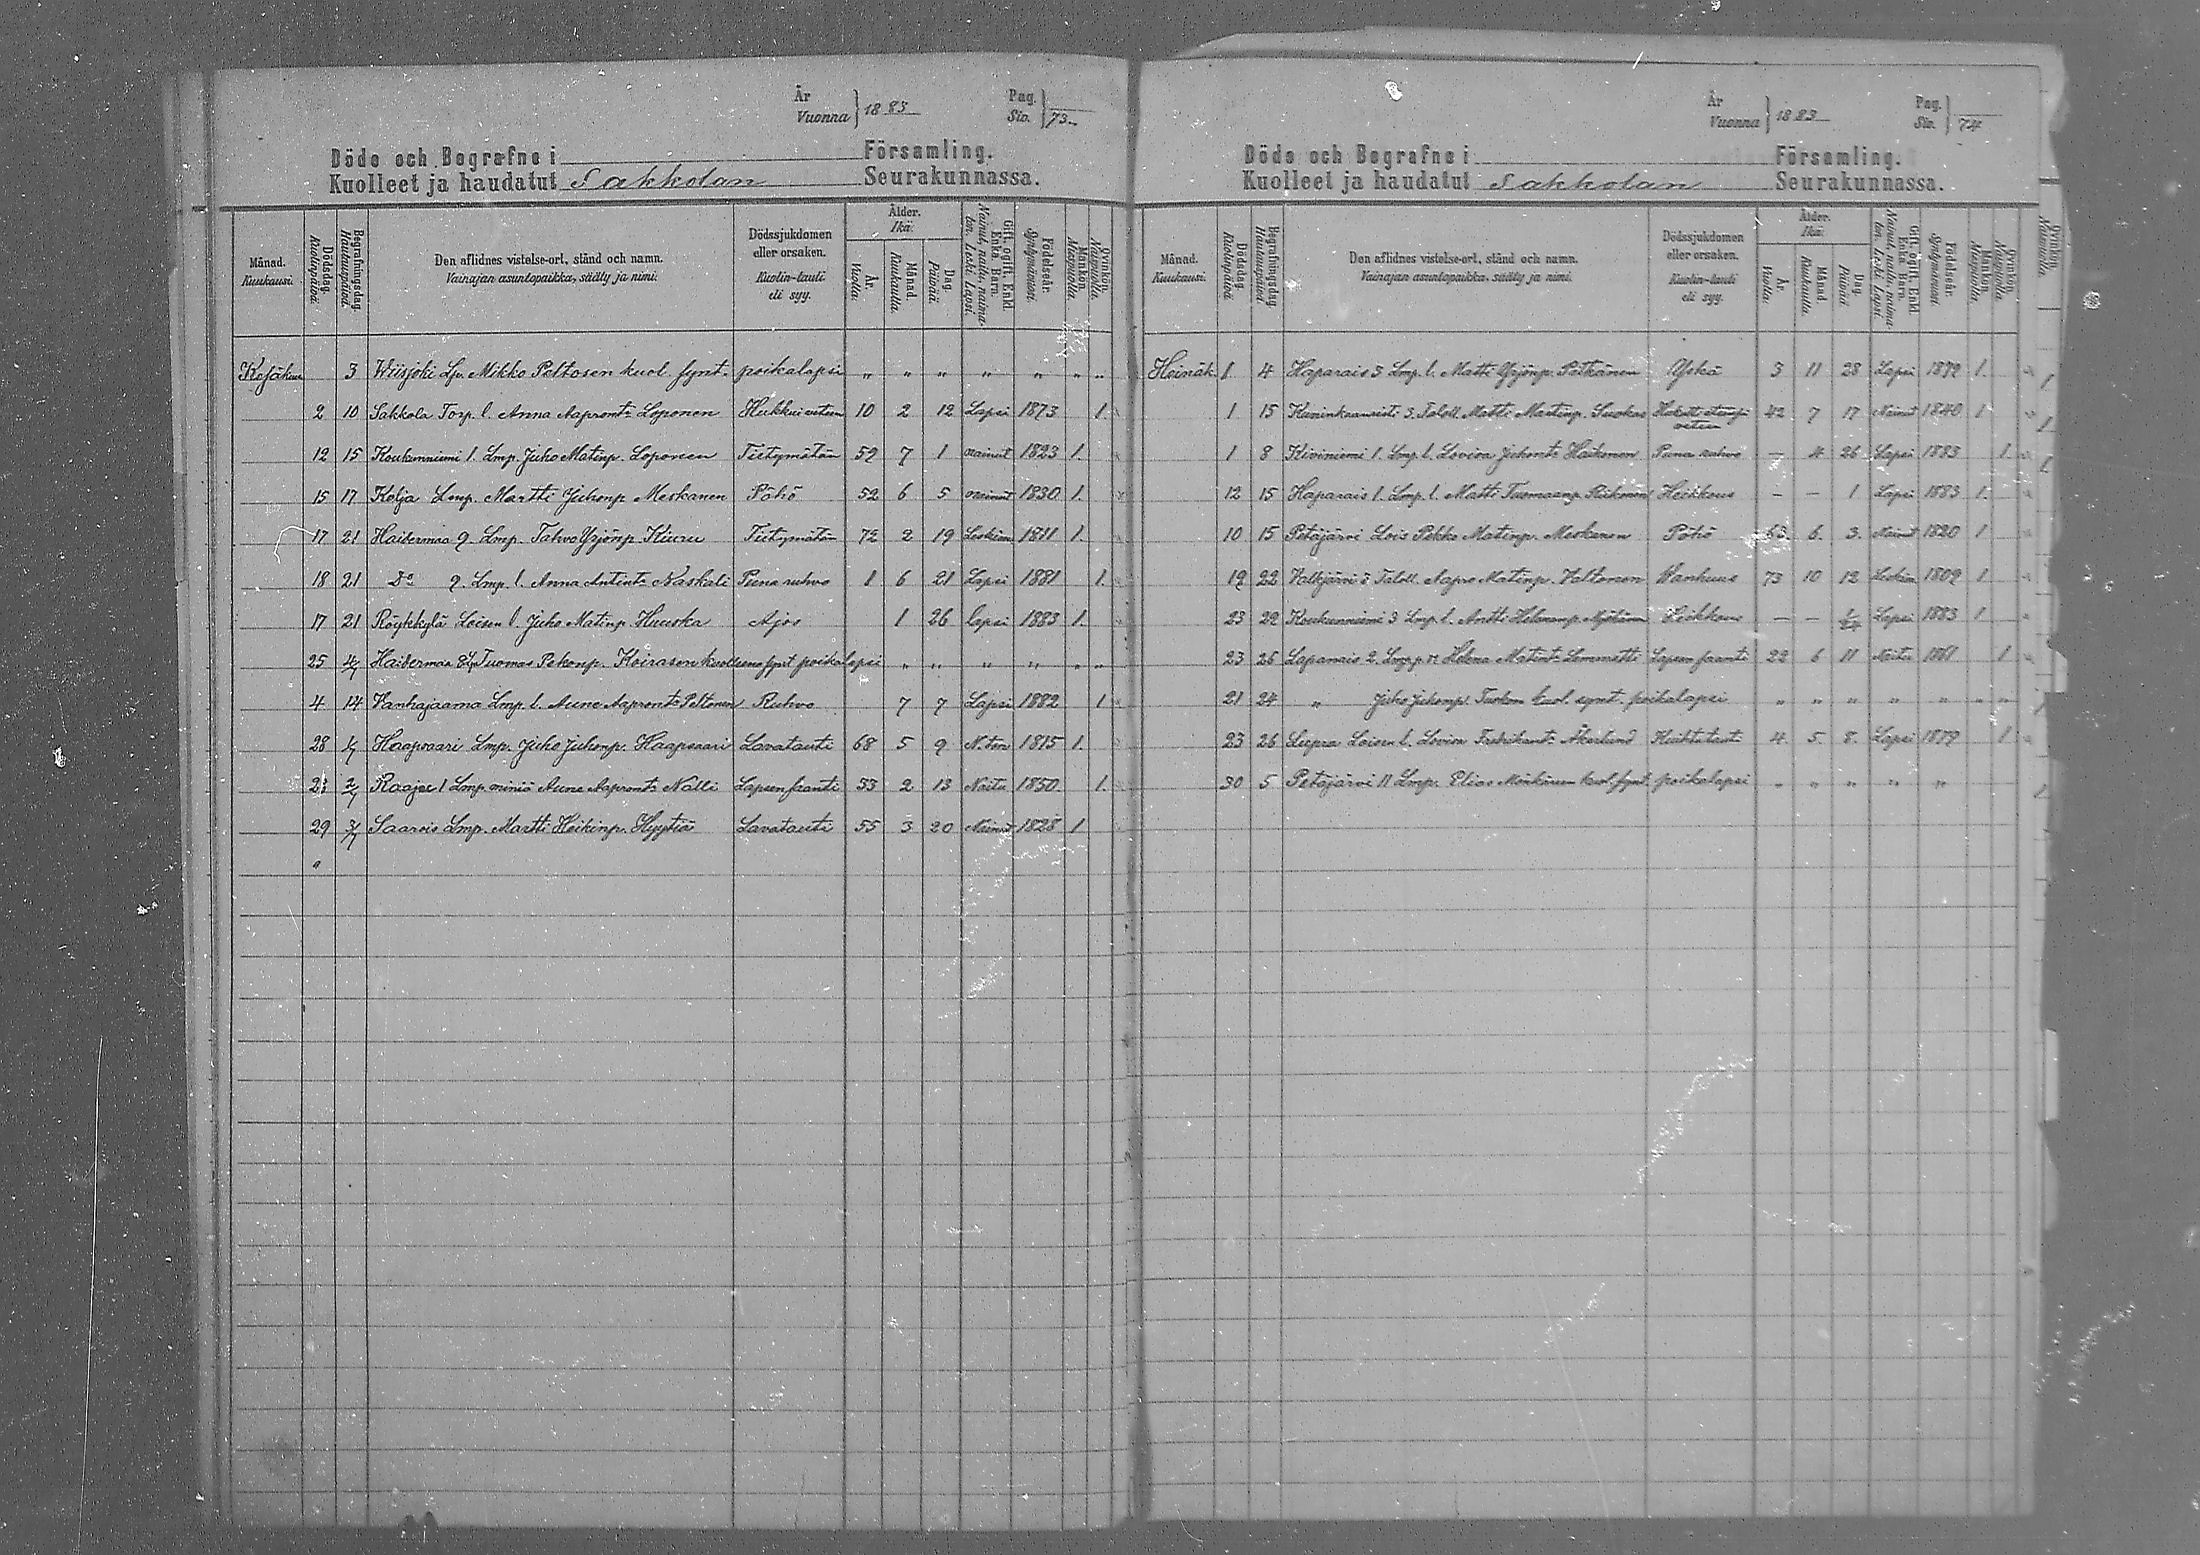 År Vuonna } 1883 Pag. Siv. } 73.
Döde och Begrafne i Församling.
Kuolleet ja haudatut Sakkolan Seurakunnassa.
Månad. Kuukausi. Dödsdag. Kuolinpäivä. Begrafningsdag. Hautauspäivä. Den aflidnes vistelse-ort, stånd och namn. Vainajan asuntopaikka, sääty ja nimi. Dödssjukdomen eller orsaken. Kuolin-tauti eli syy. Ålder. Ikä. År. Vuotta. Månad. Kuukautta. Dag. Päivää. Gift, ogift. Enkl. Enka. Barn. Nainut, naima-ton. Leski. Lapsi. Födelseår. Syntymävuosi. Mankön. Miespuolia. Qvinkön. Naispuolia.
Kesäkuu 3 Wiisjoki Mikko Peltosen kuol. synt. poikalapsi " " " " " " "
2 10 Sakkola Torp. l. Anna Aapront. Loponen Hukkui veteen 10 2 12 Lapsi 1873 1.
12 15 Koukunniemi 1. Lmp. Juho Matinp. Loponen Tietymätön 59 7 1 nainut 1823 1.
15 17 Kelja Lmp. Martti Juhonp. Meskanen Pöhö 52 6 5 nainut 1830 1.
17 21 Haitermaa 9. Lmp. Tahvo Yrjönp. Kiuru Tietymätön 72 2 19 Leskim 1811 1.
18 21 Do 9. Lmp. l. Anna Antint. Naskali Puna ruhvo 1 6 21 Lapsi 1881 1.
17 21 Röykkylä Loisen l. Juho Matinp. Huuska Ajos 1 26 lapsi 1883 1.
25 4/7 Haitermaa 8 Tuomas Pekonp. Koirasen kuolleena synt poikalapsi " " " " " "
4 14 Vanhajaama Lmp. l. Aune Aapront. Peltonen Ruhvo 7 7 Lapsi 1882 1
28 1/7 Haapsaari Lmp. Juho Juhonp. Haapsaari Lavatauti 68 5 9 N. ton 1815 1.
23 2/7 Raajae 1 Lmp. miniä Aune Aapront. Nalli Lapsen saanti 33 2 13 Naitu 1850 1.
29 3/7 Saarois Lmp. Martti Heikinp. Hyytiä Lavatauti 55 3 20 Nainut 1828 1
År Vuonna } 1883 Pag. Siv. } 74
Döde och Begrafne i Församling.
Kuolleet ja haudatut Sakkolan Seurakunnassa.
Månad. Kuukausi. Dödsdag. Kuolinpäivä. Begrafningsdag. Hautauspäivä. Den aflidnes vistelse-ort, stånd och namn. Vainajan asuntopaikka, sääty ja nimi. Dödssjukdomen eller orsaken. Kuolin-tauti eli syy. Ålder. Ikä. År. Vuotta. Månad. Kuukautta. Dag. Päivää. Gift, ogift. Enkl. Enka. Barn. Nainut, naima-ton. Leski. Lapsi. Födelseår. Syntymävuosi. Mankön. Miespuolia. Qvinkön. Naispuolia.
Heinäk. 1 4 Haparais 3 Lmp. l. Matti Yrjönp. Pitkänen Yskä 3 11 28 Lapsi 1879 1.
1 15 3. Taloll. Matti Martinp. Suokas 42 7 17 Nainut 1840 1
veteen
1 8 Kiviniemi 1. Lmp. l. Lovisa Juhont. Haikonen Puna ruhvo – 4 26 Lapsi 1883 1.
12 15 Haparais 1. Lmp. l. Matti Tuomaanp. Riikonen Heikkous – – 1 Lapsi 1883 1.
10 15 Petäjärvi Lois Pekko Matinp. Meskanen Pöhö 63. 6. 3. Nainut 1820 1
19 22 Valkjärvi Taloll. Aapro Matinp. Valtonen Vanhuus 73 10 12 Leskim 1809 1
23 29 Koukunniemi 3 Lmp. l. Antti Heikkous – – Lapsi 1883 1
23 26 Lapanais 2. Helena Matint. Lemmetti Lapsen saanti 22 6 11 Naitu 1861 1
21 24 " Juho Juhonp. kuol. synt. poikalapsi " " " " " " "
23 26 Loisen l. Lovisa Fredrikint. Åkerlund 4. 5. 8. Lapsi 1879 1
30 5 Petäjärvi 11 Lmp. Elias Mönkösen kuol. synt. poikalapsi " " " " "